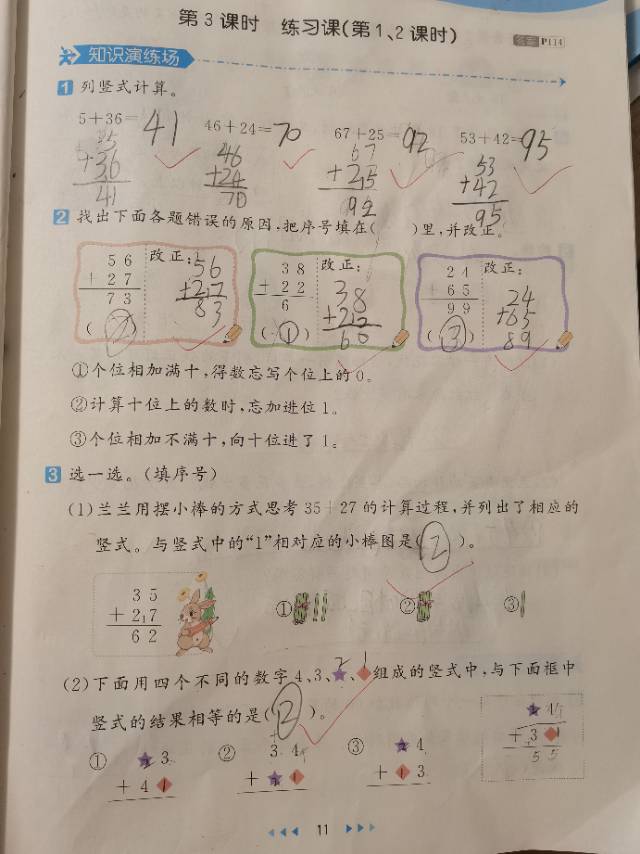 第3课时 练习课(第1、2课时)
答案 P114
知识演练场
1 列竖式计算。
5+36=41 46+24=70 67+25=92 53+42=95
35 46 67 53
+36 +24 +25 +42
41 70 92 95
2 找出下面各题错误的原因,把序号填在( )里,并改正。
56 改正:56 38 改正: 24 改正:
+27 +27 +22 38 +65 24
73 83 6 +22 99 +65
(②) (①) 60 (③) 89
①个位相加满十,得数忘写个位上的0。
②计算十位上的数时,忘加进位1。
③个位相加不满十,向十位进了1。
3 选一选。(填序号)
(1)兰兰用摆小棒的方式思考35+27的计算过程,并列出了相应的
竖式。与竖式中的“1”相对应的小棒图是(②)。
35
+217
62
① ② ③
(2)下面用四个不同的数字4、3、★、◆组成的竖式中,与下面框中
2 1
竖式的结果相等的是(②)。
① ★3 ② 34 ③ ★4 ★4
+4◆ +★◆ +◆3 +3◆
55
11